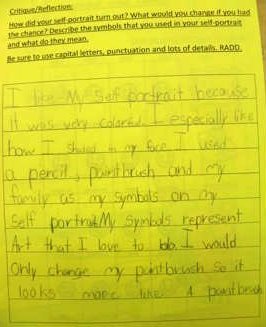 Critique/Reflection:
How did your self-portrait turn out? What would you change if you had
the chance? Describe the symbols that you used in your self-portrait
and what do they mean.
Be sure to use capital letters, punctuation and lots of details. RADD.
I like My self portrait because
it was very colored. I especially like
how I shaded in my face. I used
a pencil, paintbrush and my
family as my symbols on my
self portrait. My symbols represent
Art that I love to do. I would
only change my paintbrush so it
looks more like a paintbrush